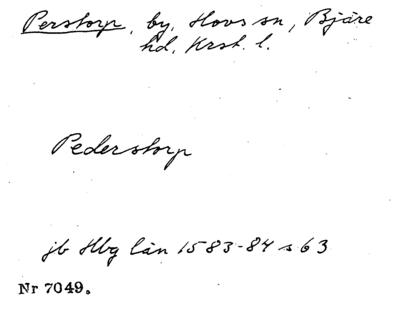 Perstorp, by, Hovs sn, Bjäre
hd, Krst. l.
Pederstorp
jb Hbg län 1583-84 s 63
Nr 7049.